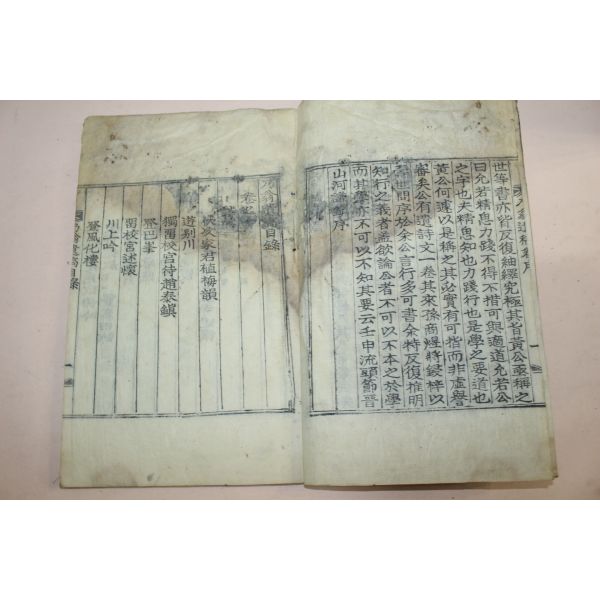 世等書亦皆反復紬繹究極其旨黃公亟稱之
曰允若精思力踐不得不措可與適道允若公
之字也夫精思知也力踐行也是學之要道也
黃公何遽以是稱之其必實有可指而非虛譽
審矣公有遺詩文一卷其來孫商燁將鋟梓以
問序於余公言行多可書余特反復推明
知行之義者蓋欲論公者不可以不本之於學
而其學亦不可以不知其要云壬申流頭節晉
山河序
目錄
卷之
次家君植梅韻
遊別川
獨留校宮待趙泰鎭
登巴峯
留校宮述懷
川上吟
登風化樓
目錄